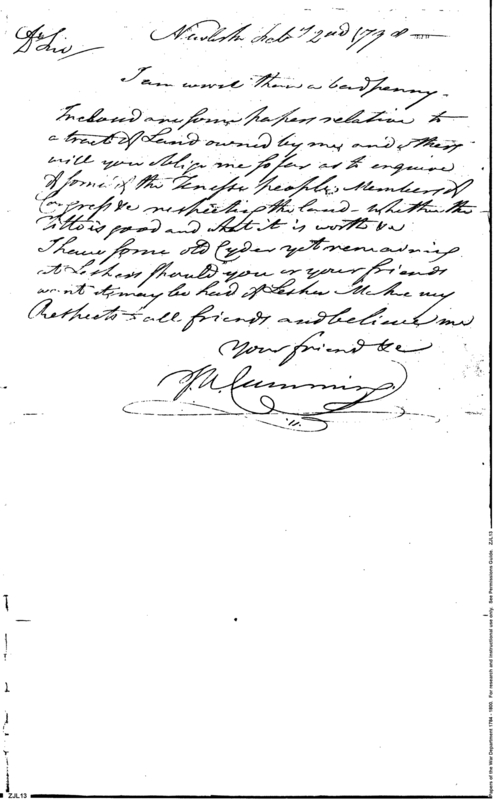 Dr Sir
Newark Feb'y 2nd 1798
I am worse than a bad penny.
Inclosed are some papers relative to
a tract of Land owned by me, and others
will you oblige me so far as to enquire
of some of the Tenessee people, Members of
Congress &c respecting the land – whether the
Title is good and what it is worth &c
I have some old Cyder yet remaining
at Leshers should you or your friends
want it, may be had of Lesher Make my
Respects to all friends and believe me
Your friend &c
J. N. Cumming
Papers of the War Department 1784 - 1800. For research and instructional use only. See Permissions Guide. ZJL13
ZJL13